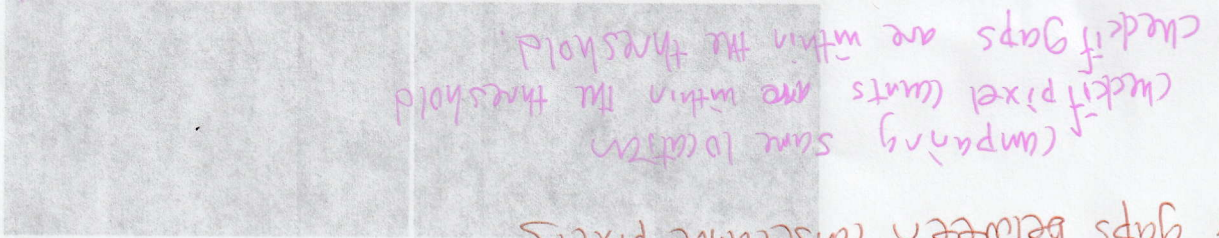 gaps between consecutive pixels
Comparing same location
check if pixel counts are within the threshold
check if gaps are within the threshold.